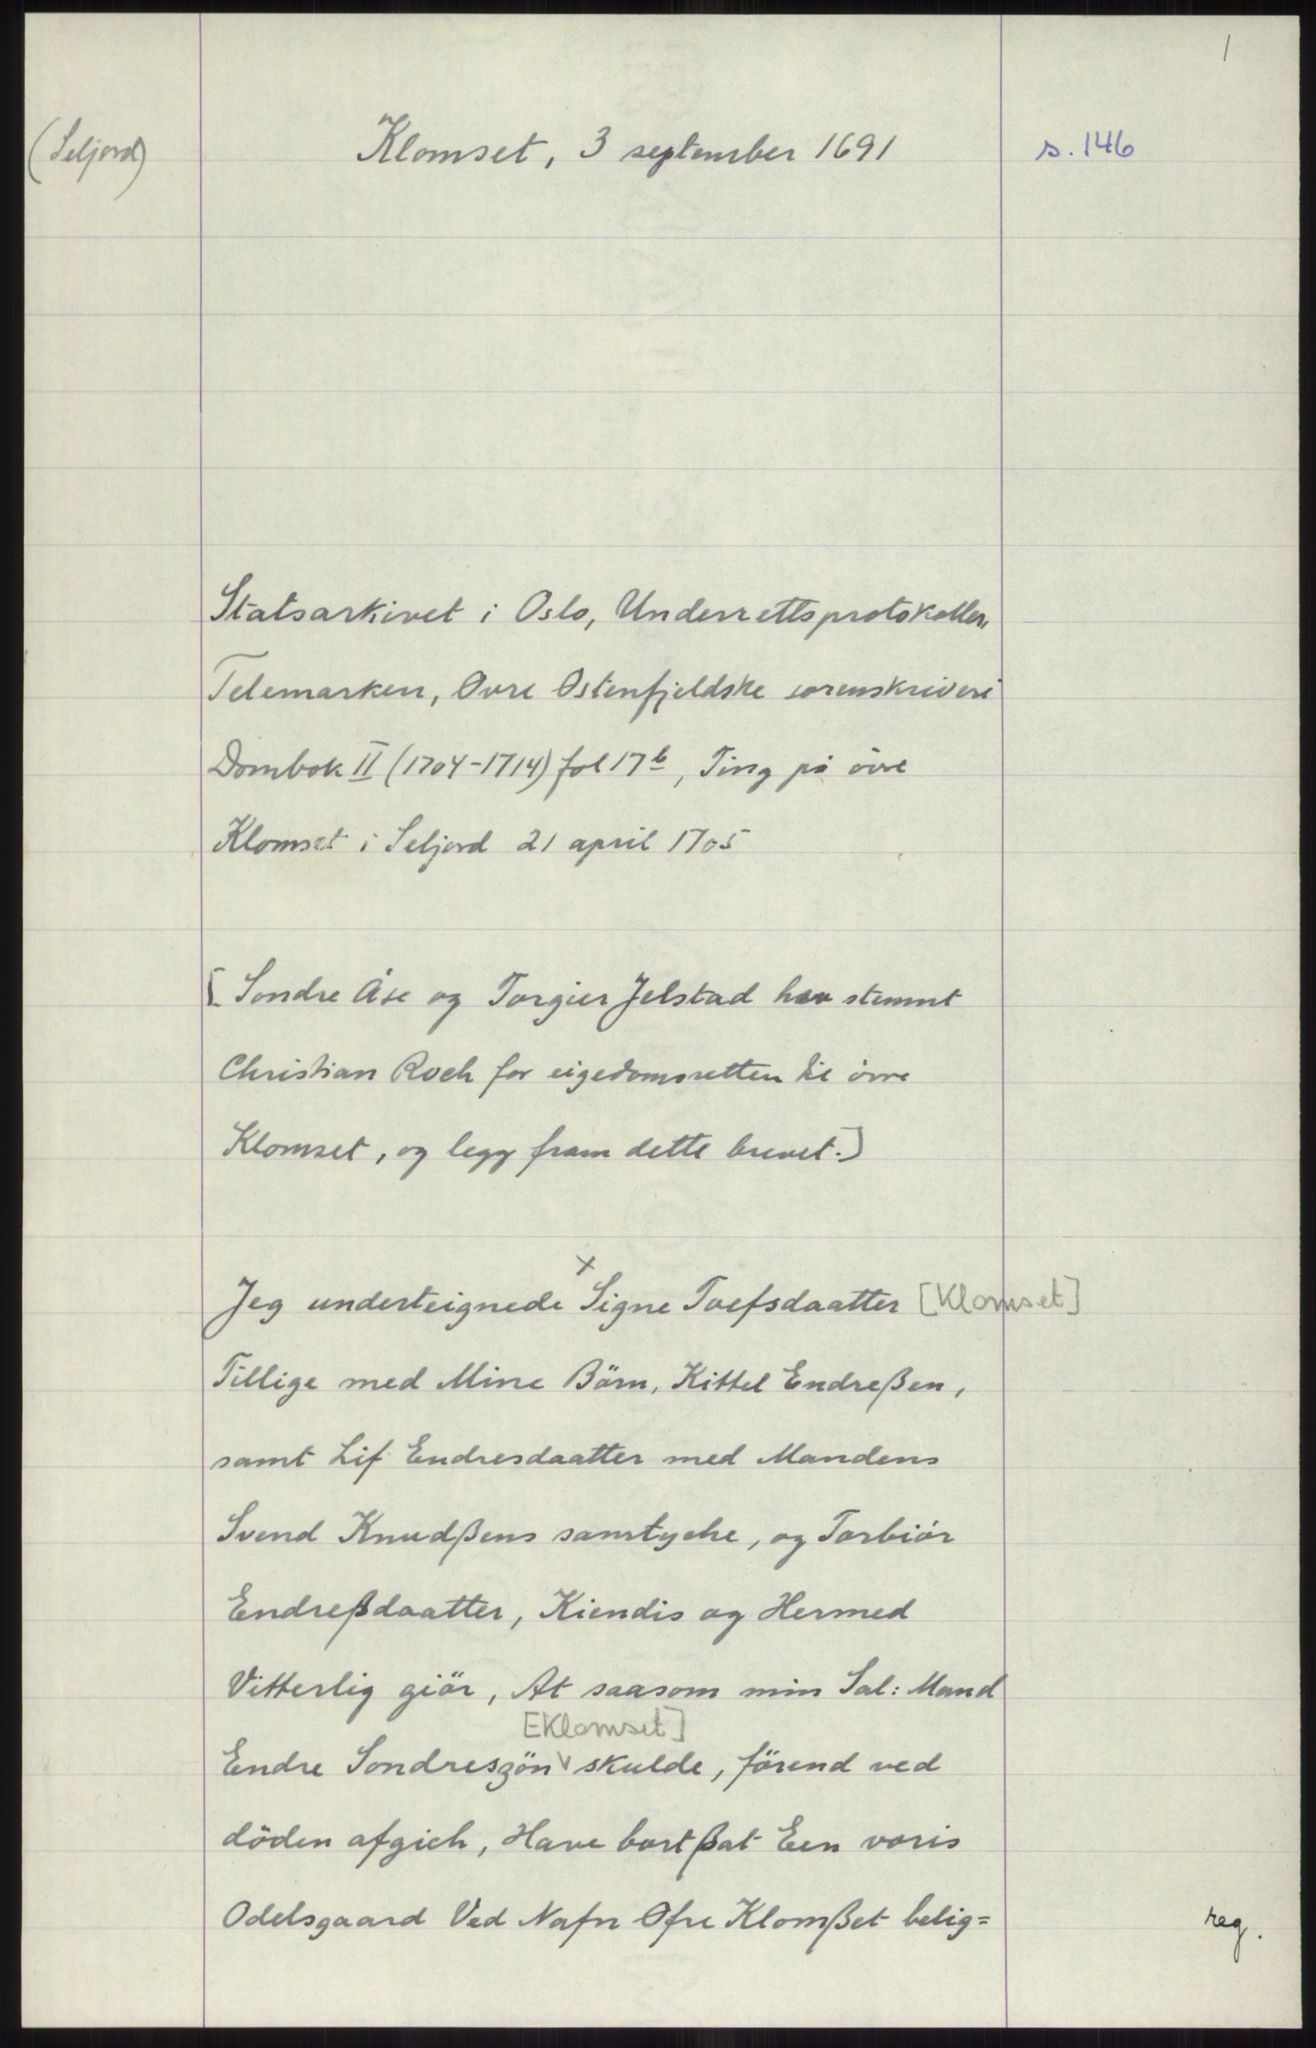 1
(Seljord)
Klomset, 3 september 1691
s. 146
Statsarkivet i Oslo, Underrettsprotokoller,
Telemarken, Øvre Østenfjeldske sorenskriveri
Dombok II (1704-1714) fol 17b, Ting på övre
Klomset i Seljord 21 april 1705
[Sondre Åse og Torgier Jelstad hev stemnt
Christian Roch for eigedomsretten til övre
Klomset, og legg fram dette brevet.]
Jeg underteignede x Signe Toefsdaatter [Klomset]
Tillige med Mine Börn, Kittel Endreßen,
samt Lif Endresdaatter med Mandens
Svend Knudßens samtyche, og Torbiör
Endreßdaatter, Kiendis og Hermed
Vitterlig giör, At saasom min Sal: Mand
[Klomset]
Endre Sondresзön skulde, förend ved
döden afgich, Have bortßat Een voris
Odelsgaard Ved Nafn Øfre Klomßet belig=
reg.